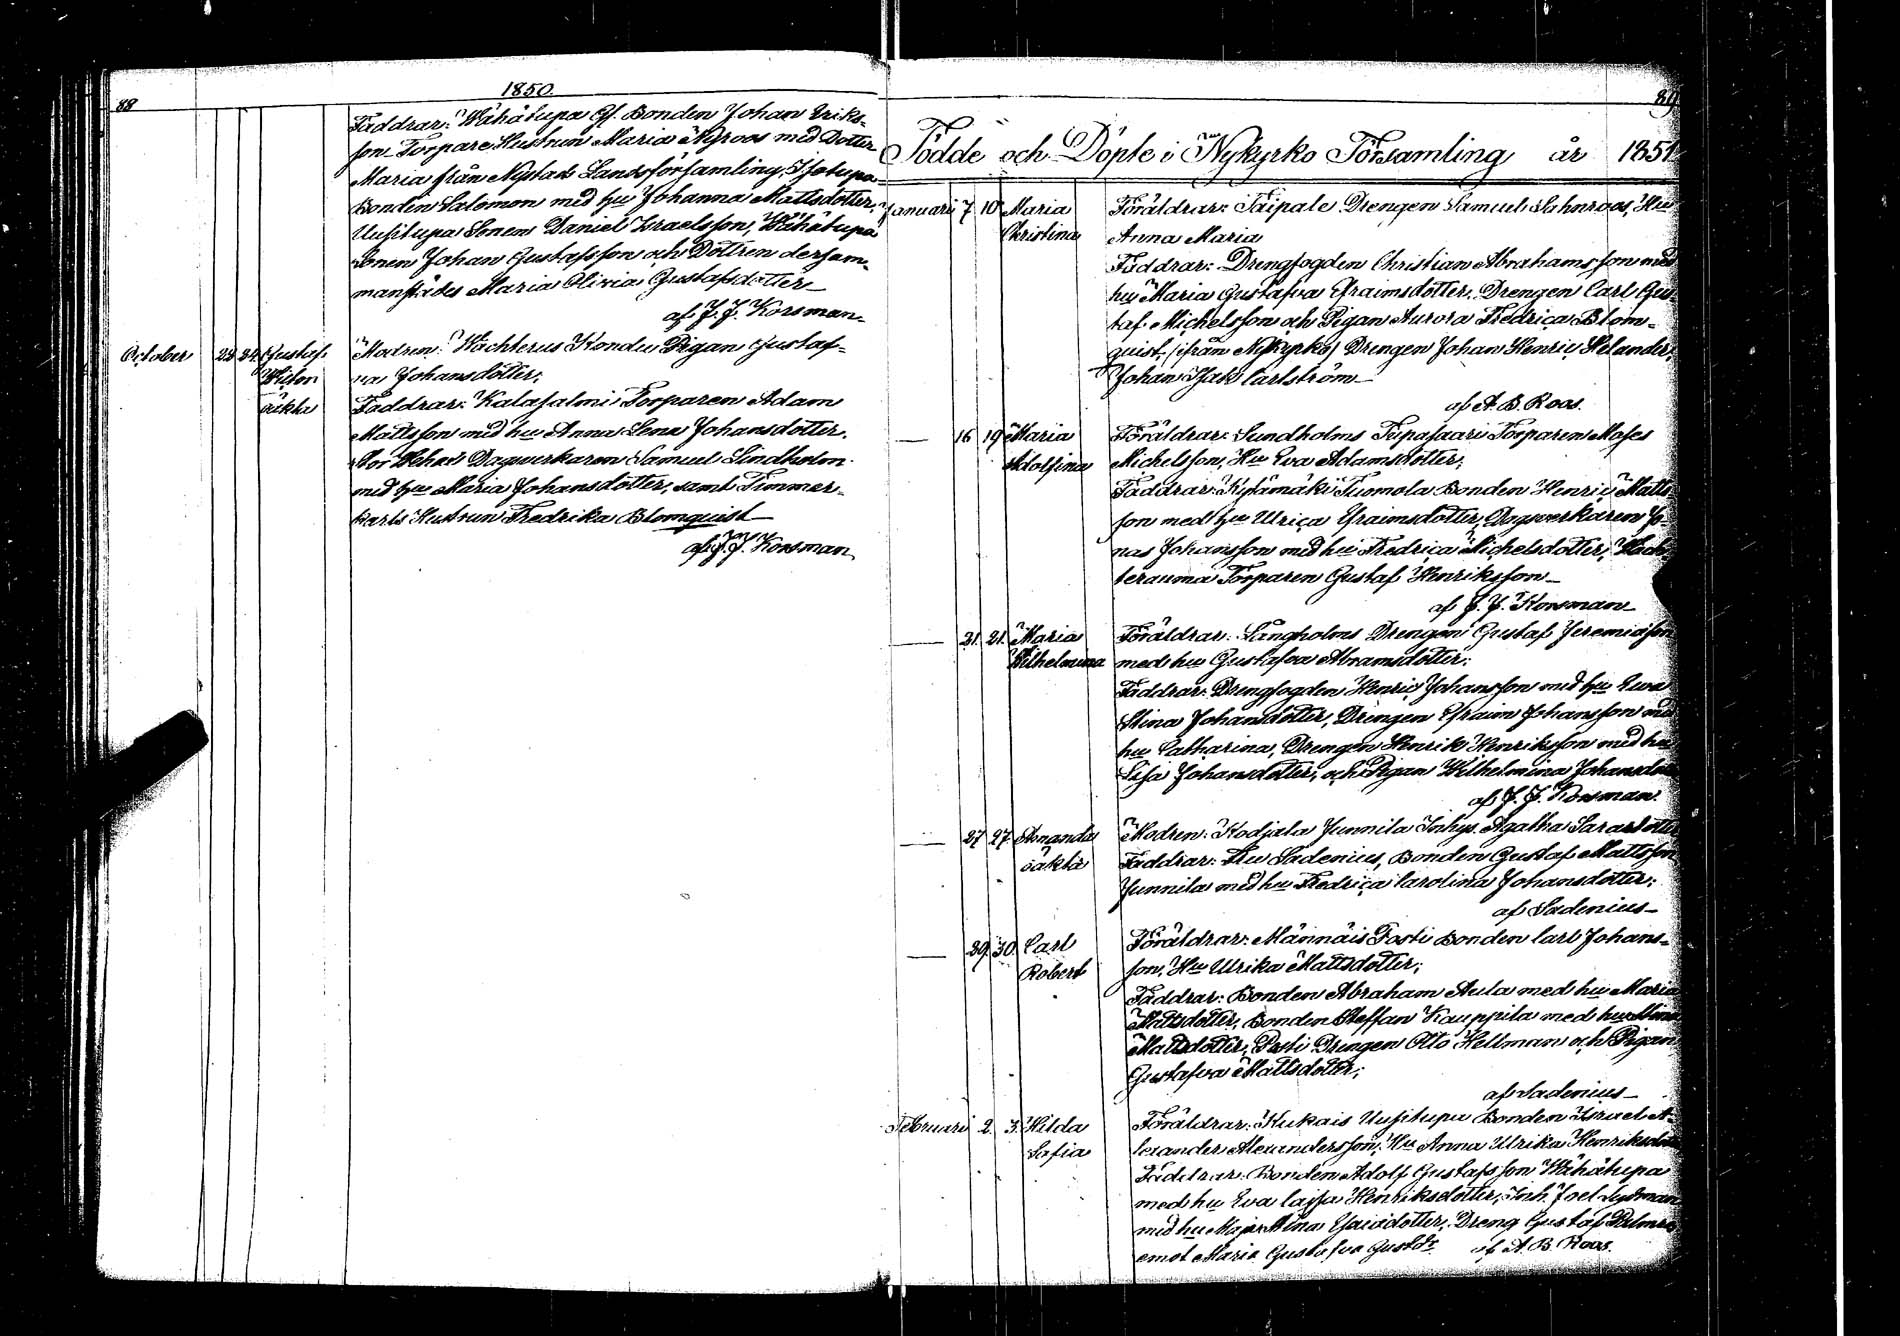 88
1850.
Faddrar: Wähätupa Gf. Bonden Johan Eriks-
son Torpare Hustrun Maria Nyroos med Dotter
Maria från Nystads Landsförsamling, Isotupa
Bonden Salomon med hu Johanna Mattsdotter,
Uusitupa Sonen Daniel Israelsson, Wähätupa
sonen Johan Gustafsson och Dottren dersam-
manstädes Maria Olivia Gustafsdotter
af J. J. Korsman.
October 23 24 Gustaf
oäkta
Modren: Wachterus Kondu Pigan Gustaf-
va Johansdotter;
Faddrar: Kalasalmi Torparen Adam
Mattsson med hu Anna Lena Johansdotter.
Dagsverkaren Samuel Lindholm
med hu Maria Johansdotter, samt Timmer-
karls Hustrun Fredrika Blomquist
af J. J. Korsman
89
Födde och Döpte i Nykyrko Församling år 1851
Januari 7 10 Maria
Christina
Föräldrar: Taipale Drengen Samuel Sahnroos, Hu
Anna Maria
Faddrar: Drengfogden Christian Abrahamsson med
hu Maria Gustafva Efraimsdotter, Drengen Carl Gus-
taf Michelsson och Pigan Aurora Fredrica Blom-
quist, (ifrån Nykyrko) Drengen Johan Henric Helander,
Johan Isak Carlström
af A. B. Roos.
16 19 Maria
Adolfina
Föräldrar: Sundholms Torparen Moses
Michelsson, Hu Eva Adamsdotter;
Faddrar: Kylämäki Tuomola Bonden Henric Matts
son med hu Ulrica Efraimsdotter, Dagsverkaren Jo-
nas Johansson med hu Fredrica Michelsdotter, Wach-
terauma Torparen Gustaf Henriksson
af J. J. Korsman
21. 21. Maria
Wilhelmina
Föräldrar: Långholms Drengen Gustaf Jeremiasson
med hu Gustafva Abramsdotter;
Faddrar: Drengfogden Henric Johansson med hu Ewa
Stina Johansdotter, Drengen Efraim Johansson med
hu Catharina, Drengen Henrik Henriksson med hu
Lisa Johansdotter, och Pigan Wilhelmina Johansdotter
af J. J. Korsman.
27 27. Amanda
oäkta
Modren: Kodjala Junnila Inhys. Agatha Sarasdotter
Faddrar: Fru Sadenius, Bonden Gustaf Mattsson
Junnila med hu Fredrica Carolina Johansdotter;
af Sadenius
29. 30. Carl
Robert
Föräldrar: Männäis Posti Bonden Carl Johans-
son, Hu Ulrika Mattsdotter;
Faddrar: Bonden Abraham Aula med hu Maria
Mattsdotter, Bonden Steffan Kauppila med hu Stina
Mattsdotter, Posti Drengen Otto Hellman och Pigan
Gustafva Mattsdotter;
af Sadenius
Februari 2. 3. Hilda
Sofia
Föräldrar: Kukais Uusitupa Bonden Israel A-
lexander Alexandersson, Hu Anna Ulrika Henriksdotter
Faddrar: Bonden Adolf Gustafsson Wähätupa
med hu Eva Caisa Henriksdotter, Inh. Joel
med hu Maja Stina Dreng Gustaf
emot Maria Gustafva Gustdr af A. B. Roos.